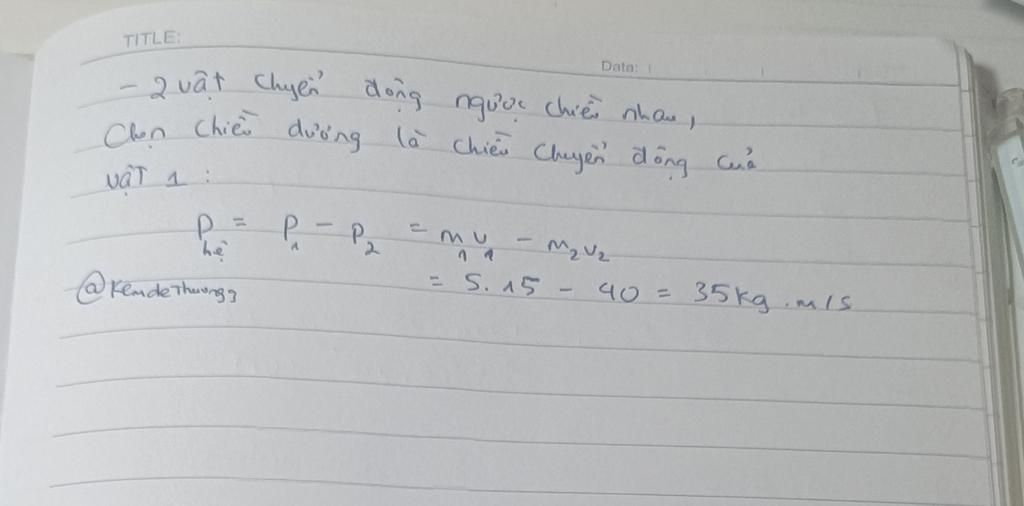 TITLE:
Data:
- 2 vật chuyển động ngược chiều nhau,
Chọn chiều dương là chiều chuyển động của
vật 1 :
P hệ = P1 - P2 = m1v1 - m2v2
= 5.15 - 40 = 35kg.m/s
@Kemdethuong3